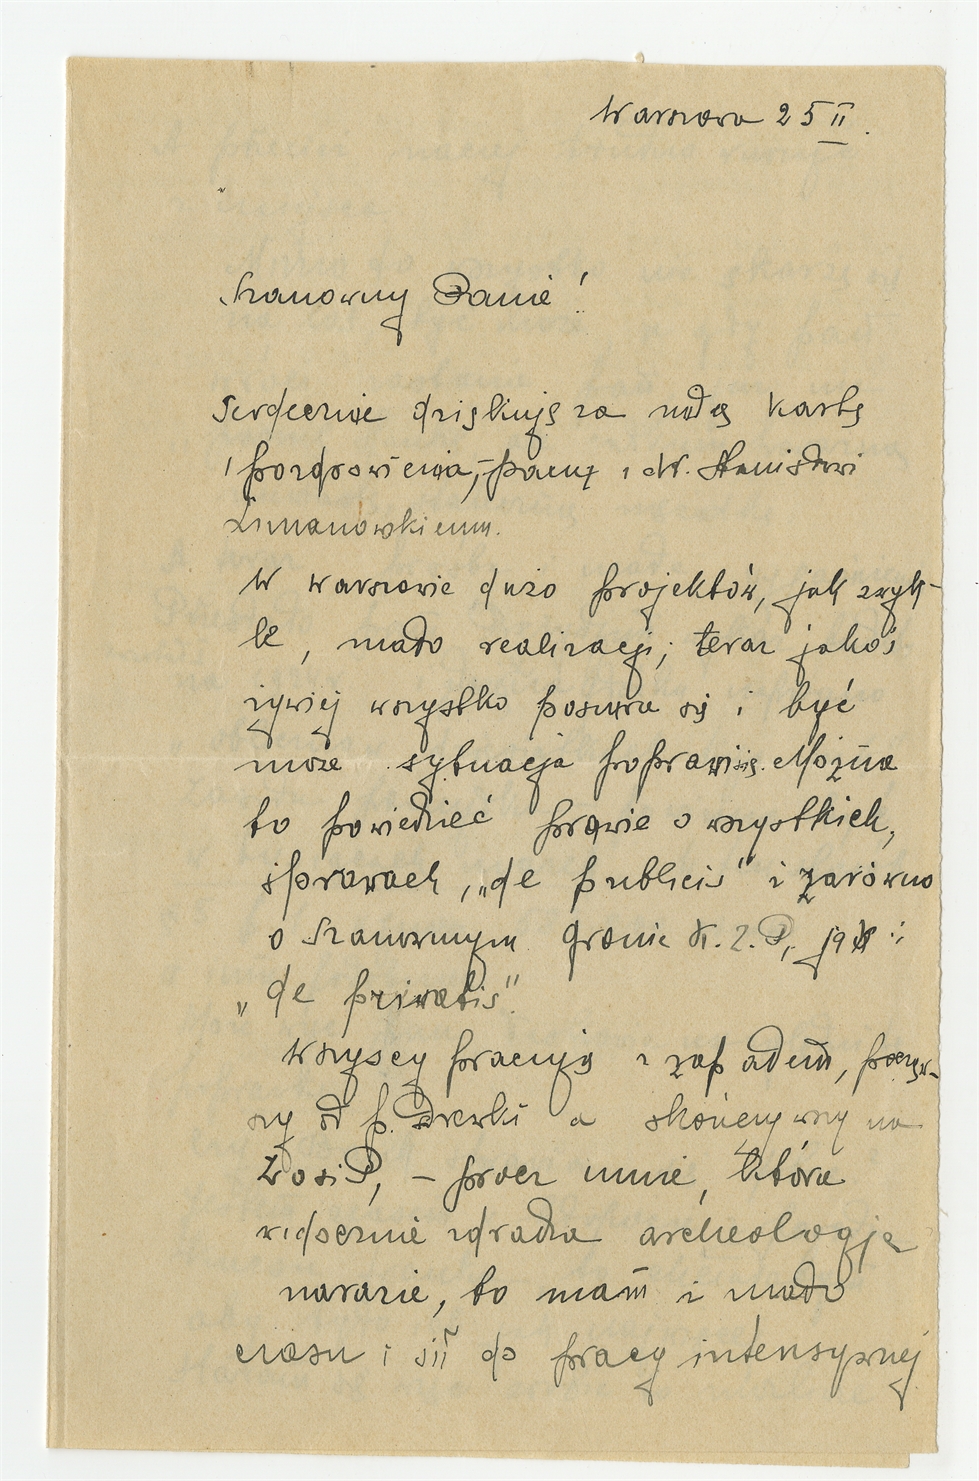 Warszawa 25 II.
Szanowny Panie!
Serdecznie dziękuję za miłą kartę
i pozdrowienia, – Panu i Dr. Stanisławowi
Limanowskiemu.
W Warszawie dużo projektów, jak zwyk-
le, mało realizacji; teraz jakoś
żywiej wszystko posuwa się i być
może sytuacja poprawi się. Można
to powiedzieć prawie o wszystkich,
sprawach, „de publicis" i zarówno
o Szanownym Gronie K.Z.P., jak i:
„de privatis".
Wszyscy pracują z zapałem, począw-
szy od p. Drewki a skończywszy na
Zosi P, – prócz mnie, która
widocznie zdradza archeologję
narazie, to mam i mało
czasu i sił do pracy intensywnej